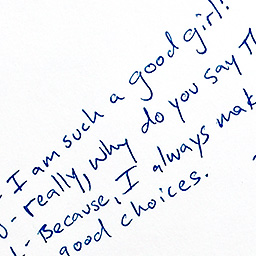 - I am such a good girl!
- really, why do you say
- Because, I always mak
good choices.